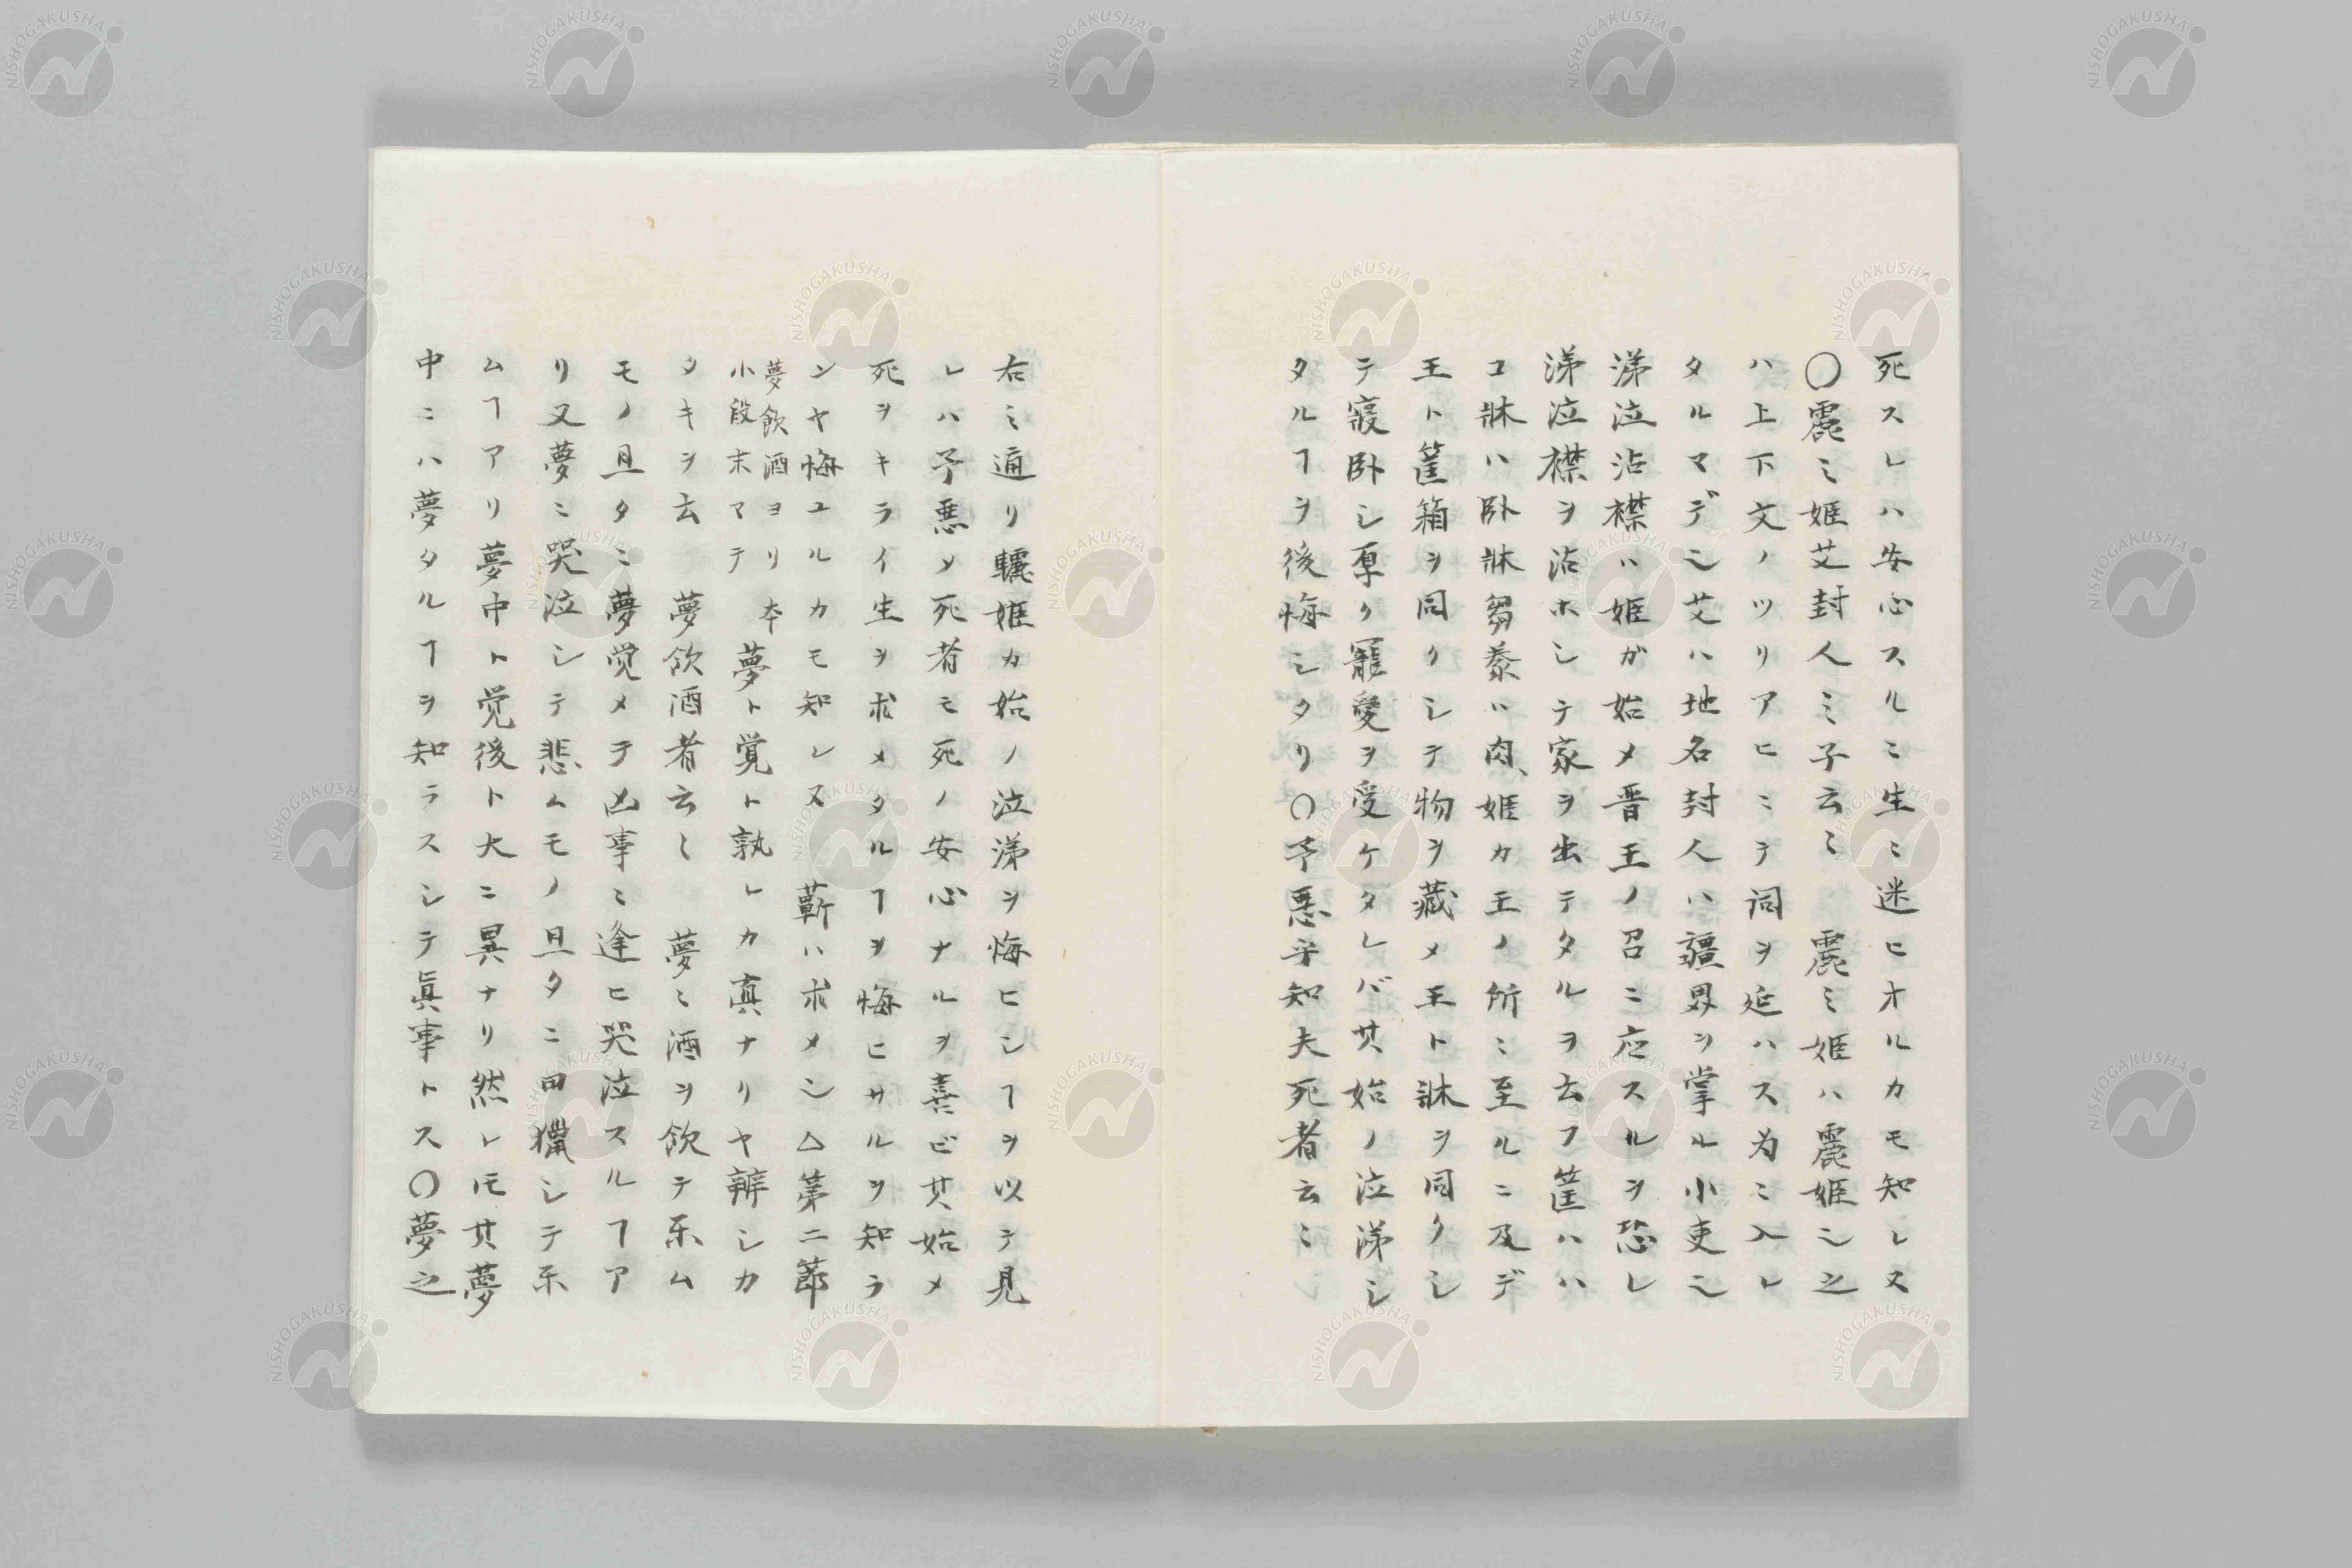 死スレハ安心スルニ生ニ迷ヒオルカモ知レス
〇麗之姫艾封人之子云〻　麗之姫ハ麗姫也之
ハ上下文ノツリアヒニテ詞ヲ延ハス為ニ入レ
タルマデ也艾ハ地名封人ハ疆界ヲ掌ル小吏也
涕泣沾襟ハ姫ガ始メ晋王ノ召ニ応スルヲ恐レ
涕泣襟ヲ沾ホシテ家ヲ出テタルヲ云フ筐ハハ
コ牀ハ卧牀芻豢ハ肉、姫カ王ノ所ニ至ルニ及デ
王ト筐箱ヲ同クシテ物ヲ藏メ王ト牀ヲ同クシ
テ寢卧シ厚ク寵愛ヲ受ケタレバ其始ノ泣涕シ
タルヿヲ後悔シタリ〇予悪乎知夫死者云〻
右之通リ驪姫カ始ノ泣涕ヲ悔ヒシヿヲ以テ見
レハ予悪ソ死者モ死ノ安心ナルヲ喜ビ其始メ
死ヲキライ生ヲ求メタルヿヲ悔ヒサルヲ知ラ
ンヤ悔ユルカモ知レス　蘄ハ求メシ△第二節
夢飲酒ヨリ本
小段末マテ
夢ト覚ト孰レカ真ナリヤ辨シカ
タキヲ云　夢飲酒者云〻　夢ニ酒ヲ飲テ乐ム
モノ旦タニ夢覚メテ凶事ニ逢ヒ哭泣スルヿア
リ又夢ニ哭泣シテ悲ムモノ旦タニ田獵シテ乐
ムヿアリ夢中ト覚後ト大ニ異ナリ然レ𪜈其夢
中ニハ夢タルヿヲ知ラスシテ眞事トス〇夢之
NISHOGAKUSHA